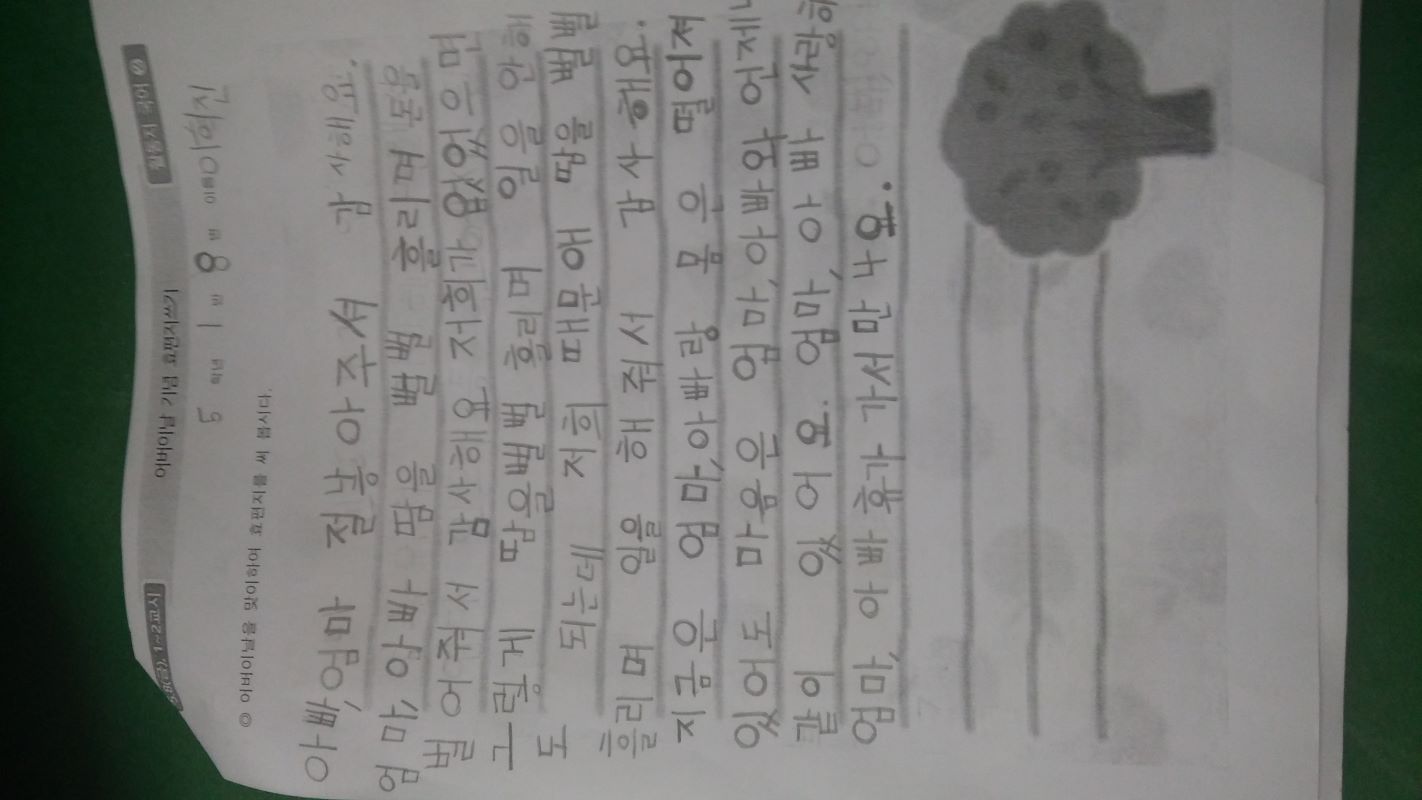 활동지 국어 ②
어버이날 기념 효편지쓰기
1~2교시
5 학년 1 반 8 번 이름 이희진
◎ 어버이날을 맞이하여 효편지를 써 봅시다.
아빠,엄마 절 낳아주셔 감사해요.
엄마,아빠 땀을 뻘뻘 흘리며 돈을
벌어줘서 감사해요 저희가 없었으면
그렇게 땀을뻘뻘 흘리며 일을 안해
도 되는데 저희 때문애 땀을 뻘뻘
흘리며 일을 해 줘서 감사해요.
지금은 엄마,아빠랑 몸은 떨어져
있어도 마음은 엄마,아빠한
같이 있어요. 엄마,아빠 사랑
엄마,아빠 휴가가서만나용.